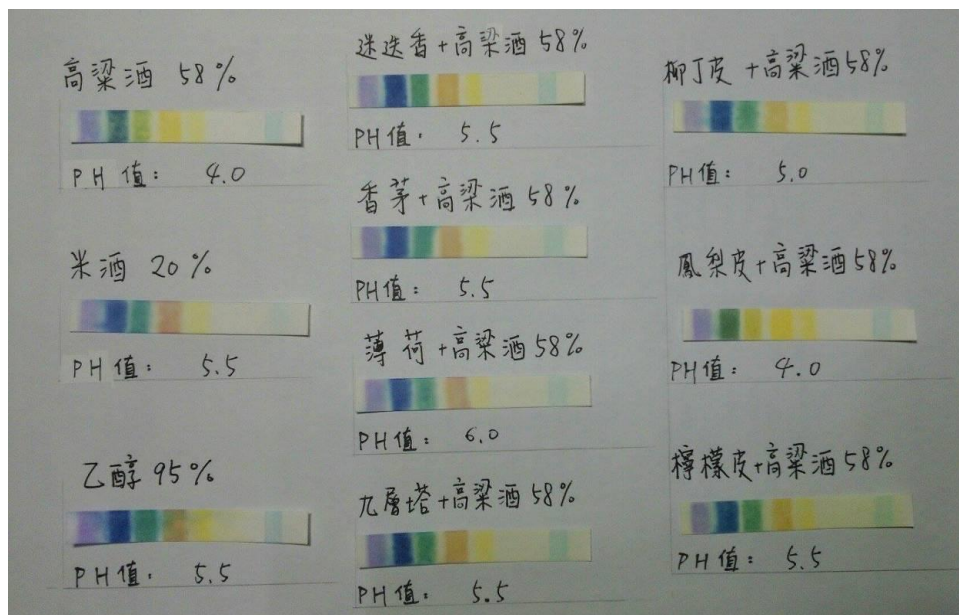 高粱酒 58%
PH 值： 4.0
米酒 20%
PH 值： 5.5
乙醇 95%
PH 值： 5.5
迷迭香+高梁酒 58%
PH 值： 5.5
香茅+高梁酒 58%
PH 值： 5.5
薄荷+高梁酒 58%
PH 值： 6.0
九層塔+高粱酒 58%
PH 值： 5.5
柳丁皮+高粱酒 58%
PH 值： 5.0
鳳梨皮+高粱酒 58%
PH 值： 4.0
檸檬皮+高粱酒 58%
PH 值： 5.5